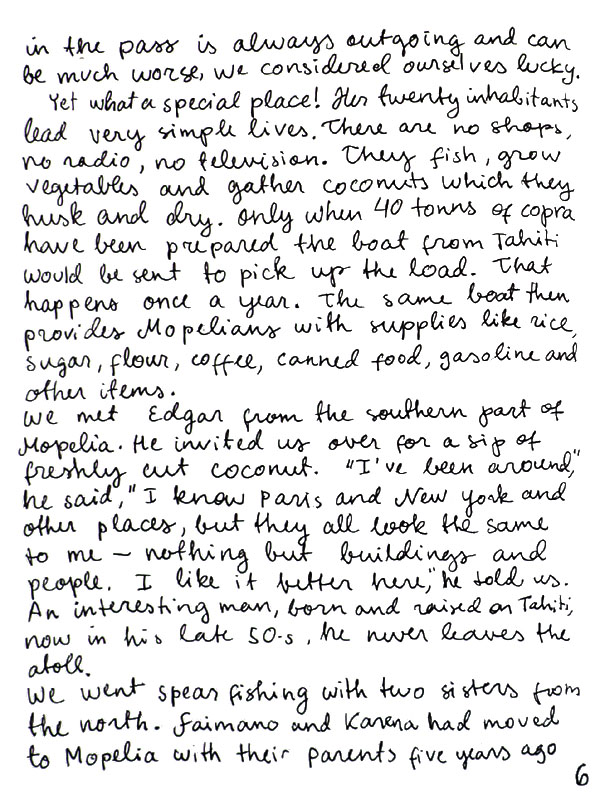 in the pass is always outgoing and can
be much worse, we considered ourselves lucky.
Yet what a special place! Her twenty inhabitants
lead very simple lives. There are no shops,
no radio, no television. They fish, grow
vegetables and gather coconuts which they
husk and dry. Only when 40 tonns of copra
have been prepared the boat from Tahiti
would be sent to pick up the load. That
happens once a year. The same boat then
provides Mopelians with supplies like rice,
sugar, flour, coffee, canned food, gasoline and
other items.
We met Edgar from the southern part of
Mopelia. He invited us over for a sip of
freshly cut coconut. "I've been around,"
he said, "I know Paris and New York and
other places, but they all look the same
to me – nothing but buildings and
people. I like it better here," he told us.
An interesting man, born and raised on Tahiti,
now in his late 50-s, he never leaves the
atoll.
We went spear fishing with two sisters from
the north. Faimano and Karena had moved
to Mopelia with their parents five years ago
6